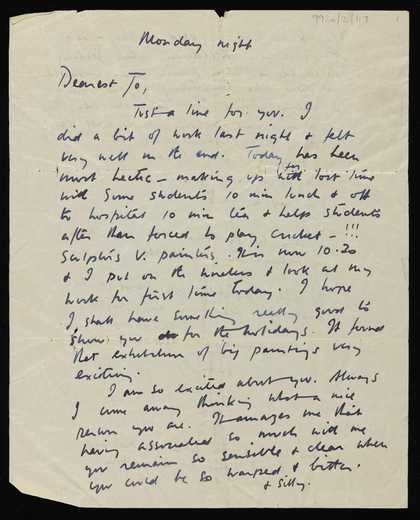 Monday night
Dearest Jo,
Just a line for you. I
did a bit of work last night & felt
very well in the end. Today has been
most hectic – making up for lost time
with some students 10 min lunch & off
to hospital 10 min tea & help students
after then forced to play cricket – !!!
Sculptors V. painters. It is now 10.20
& I put on the wireless & look at my
work for first time today. I hope
I shall have something really good to
show you for the holidays. I found
that exhibition of big paintings very
exciting.
I am so excited about you. Always
I come away thinking what a nice
person you are. It amazes me that
having associated so much with me
you remain so sensible & clear when
you could be so warped & bitter.
& silly.